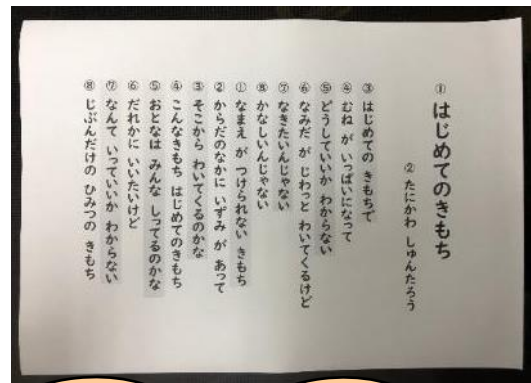 ① はじめてのきもち
② たにかわ しゅんたろう
③ はじめての きもちで
④ むね が いっぱいになって
⑤ どうしていいか わからない
⑥ なみだ が じわっと わいてくるけど
⑦ なきたいんじゃない
⑧ かなしいんじゃない
① なまえ が つけられない きもち
② からだのなかに いずみ が あって
③ そこから わいてくるのかな
④ こんなきもち はじめてのきもち
⑤ おとなは みんな しってるのかな
⑥ だれかに いいたいけど
⑦ なんて いっていいか わからない
⑧ じぶんだけの ひみつの きもち